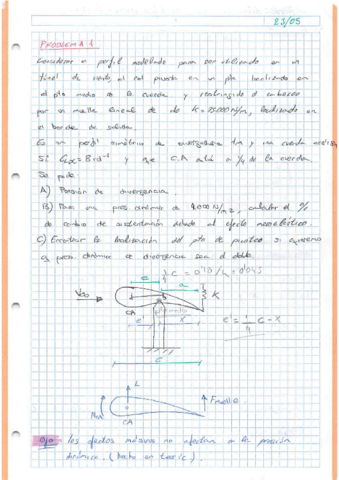 23/05
PROBLEMA 1
Considere un perfil modelado para ser utilizado en un
túnel de viento, el cual pivota en un pto localizado en
el pto medio de la cuerda y restringido el cabeceo
por un muelle lineal de cte K=25.000 N/m, localizado en
el borde de salida.
Es un perfil simétrico de envergadura 1m y una cuerda
Si CLα = 8 rd⁻¹ y que C.A está a 1/4 de la cuerda.
Se pide
A) Presión de divergencia.
B) Para una pres. dinámica de 4.000 N/m2, calcular el %
de cambio de sustentación debido al efecto aeroelástico.
C) Encontrar la localización del pto de pivoteo si queremos
q pres. dinámica de divergencia sea el doble.
e
a
K
CA
e'
x'
e' = 1/4 c - x
c
L
CA
Fmuelle
ojo → los efectos másicos no afectan a la presión
dinámica. (hecho en teoría).